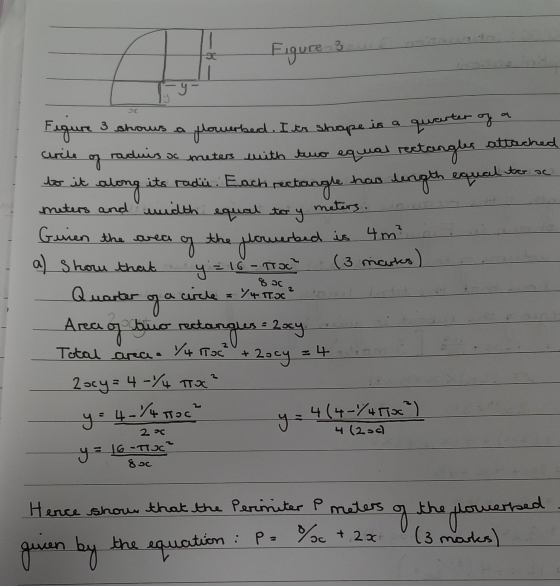 Figure 3
x
y
y
x
Figure 3 shows a flowerbed. Its shape is a quarter of a
circle of radius x meters with two equal rectangles attached
to it along its radii. Each rectangle has length equal to x
meters and width equal to y meters.
Given the area of the flowerbed is 4m²
a) Show that y = 16 - πx² / 8x (3 marks)
Quarter of a circle = 1/4 πx²
Area of two rectangles = 2xy
Total area = 1/4 πx² + 2xy = 4
2xy = 4 - 1/4 πx²
y = 4 - 1/4 πx² / 2x y = 4(4 - 1/4 πx²) / 4(2x)
y = 16 - πx² / 8x
Hence show that the Perimiter P meters of the flowerbed
given by the equation: P = 8/x + 2x (3 marks)